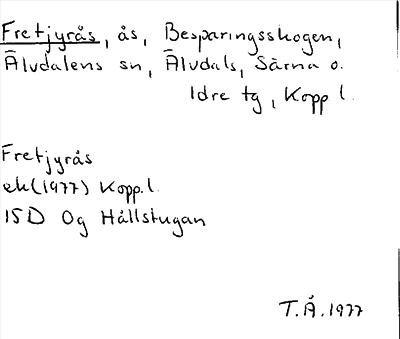 Fretjyrås, ås, Besparingsskogen,
Älvdalens sn, Älvdals, Särna o.
Idre tg, Kopp l.
Fretjyrås
ek (1977) Kopp.l.
15D 0g Hållstugan
T.Å.1977